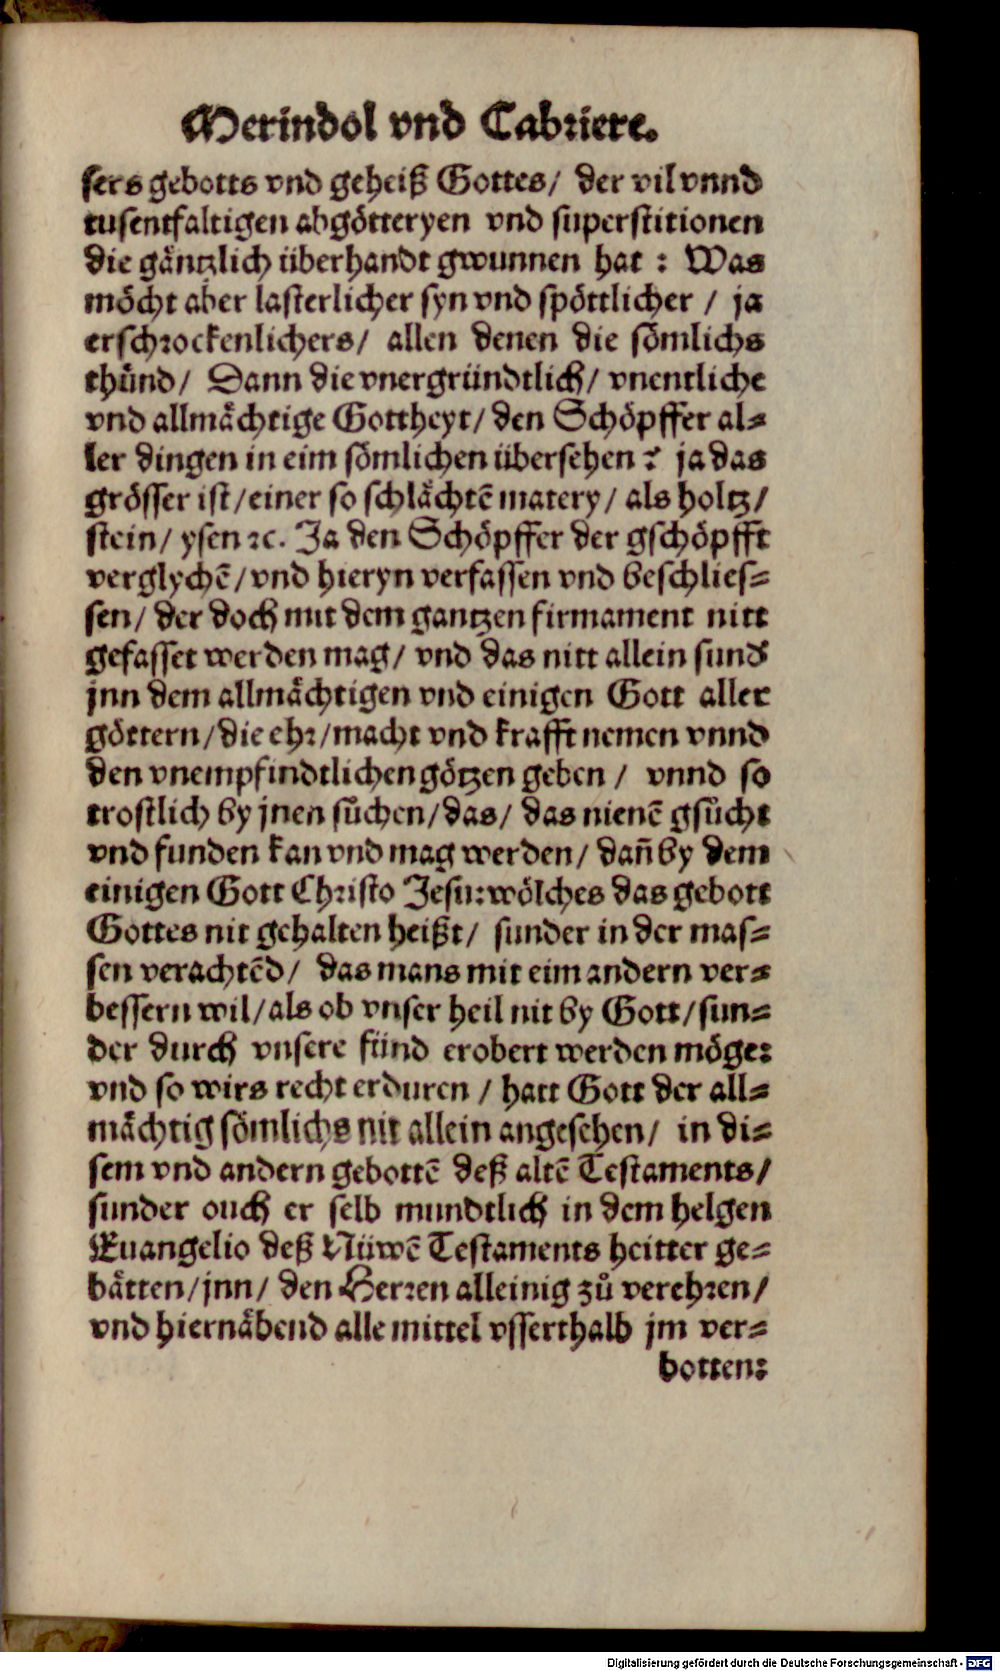 Merindol vnd Cabriere.
sers gebotts vnd geheiß Gottes/ der vil vnnd
tusentfaltigen abgötteryen vnd superstitionen
die gäntzlich überhandt gwunnen hat : Was
möcht aber lasterlicher syn vnd spöttlicher / ja
erschrockenlichers/ allen denen die sömlichs
thünd/ Dann die vnergründtlich/ vnentliche
vnd allmächtige Gottheyt/ den Schöpffer al=
ler dingen in eim sömlichen übersehen ? ja das
grösser ist/ einer so schlächtē matery/ als holtz/
stein/ ysen ꝛc. Ja den Schöpffer der gschöpfft
verglychē/ vnd hieryn verfassen vnd beschlies=
sen/ der doch mit dem gantzen firmament nitt
gefasset werden mag/ vnd das nitt allein sunds
jnn dem allmächtigen vnd einigen Gott aller
göttern/ die ehr/ macht vnd krafft nemen vnnd
den vnempfindtlichen götzen geben / vnnd so
trostlich by jnen sůchen/ das/ das nienē gsůcht
vnd funden kan vnd mag werden/ dañ by dem
einigen Gott Christo Jesu: wölches das gebott
Gottes nit gehalten heißt/ sunder in der mas=
sen verachtēd/ das mans mit eim andern ver=
bessern wil/ als ob vnser heil nit by Gott/ sun=
der durch vnsere fünd erobert werden möge:
vnd so wirs recht erduren / hatt Gott der all=
mächtig sömlichs nit allein angesehen/ in di=
sem vnd andern gebottē deß altē Testaments/
sunder ouch er selb mundtlich in dem helgen
Euangelio deß Nüwē Testaments heitter ge=
bätten/ jnn/ den Herren alleinig zů verehren/
vnd hiernäbend alle mittel vsserthalb jm ver=
botten:
Digitalisierung gefördert durch die Deutsche Forschungsgemeinschaft - DFG